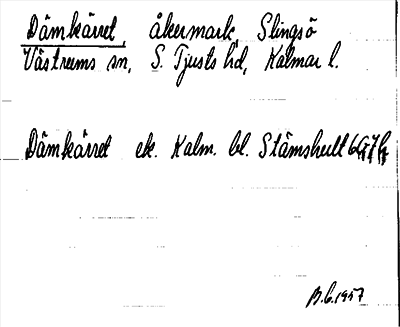 Dämkärret, åkermark, Slingsö
Västrums sn, S. Tjusts hd, Kalmar l.
Dämkärret ek. Kalm. bl. Stämshult 6G7h
B.G. 1957